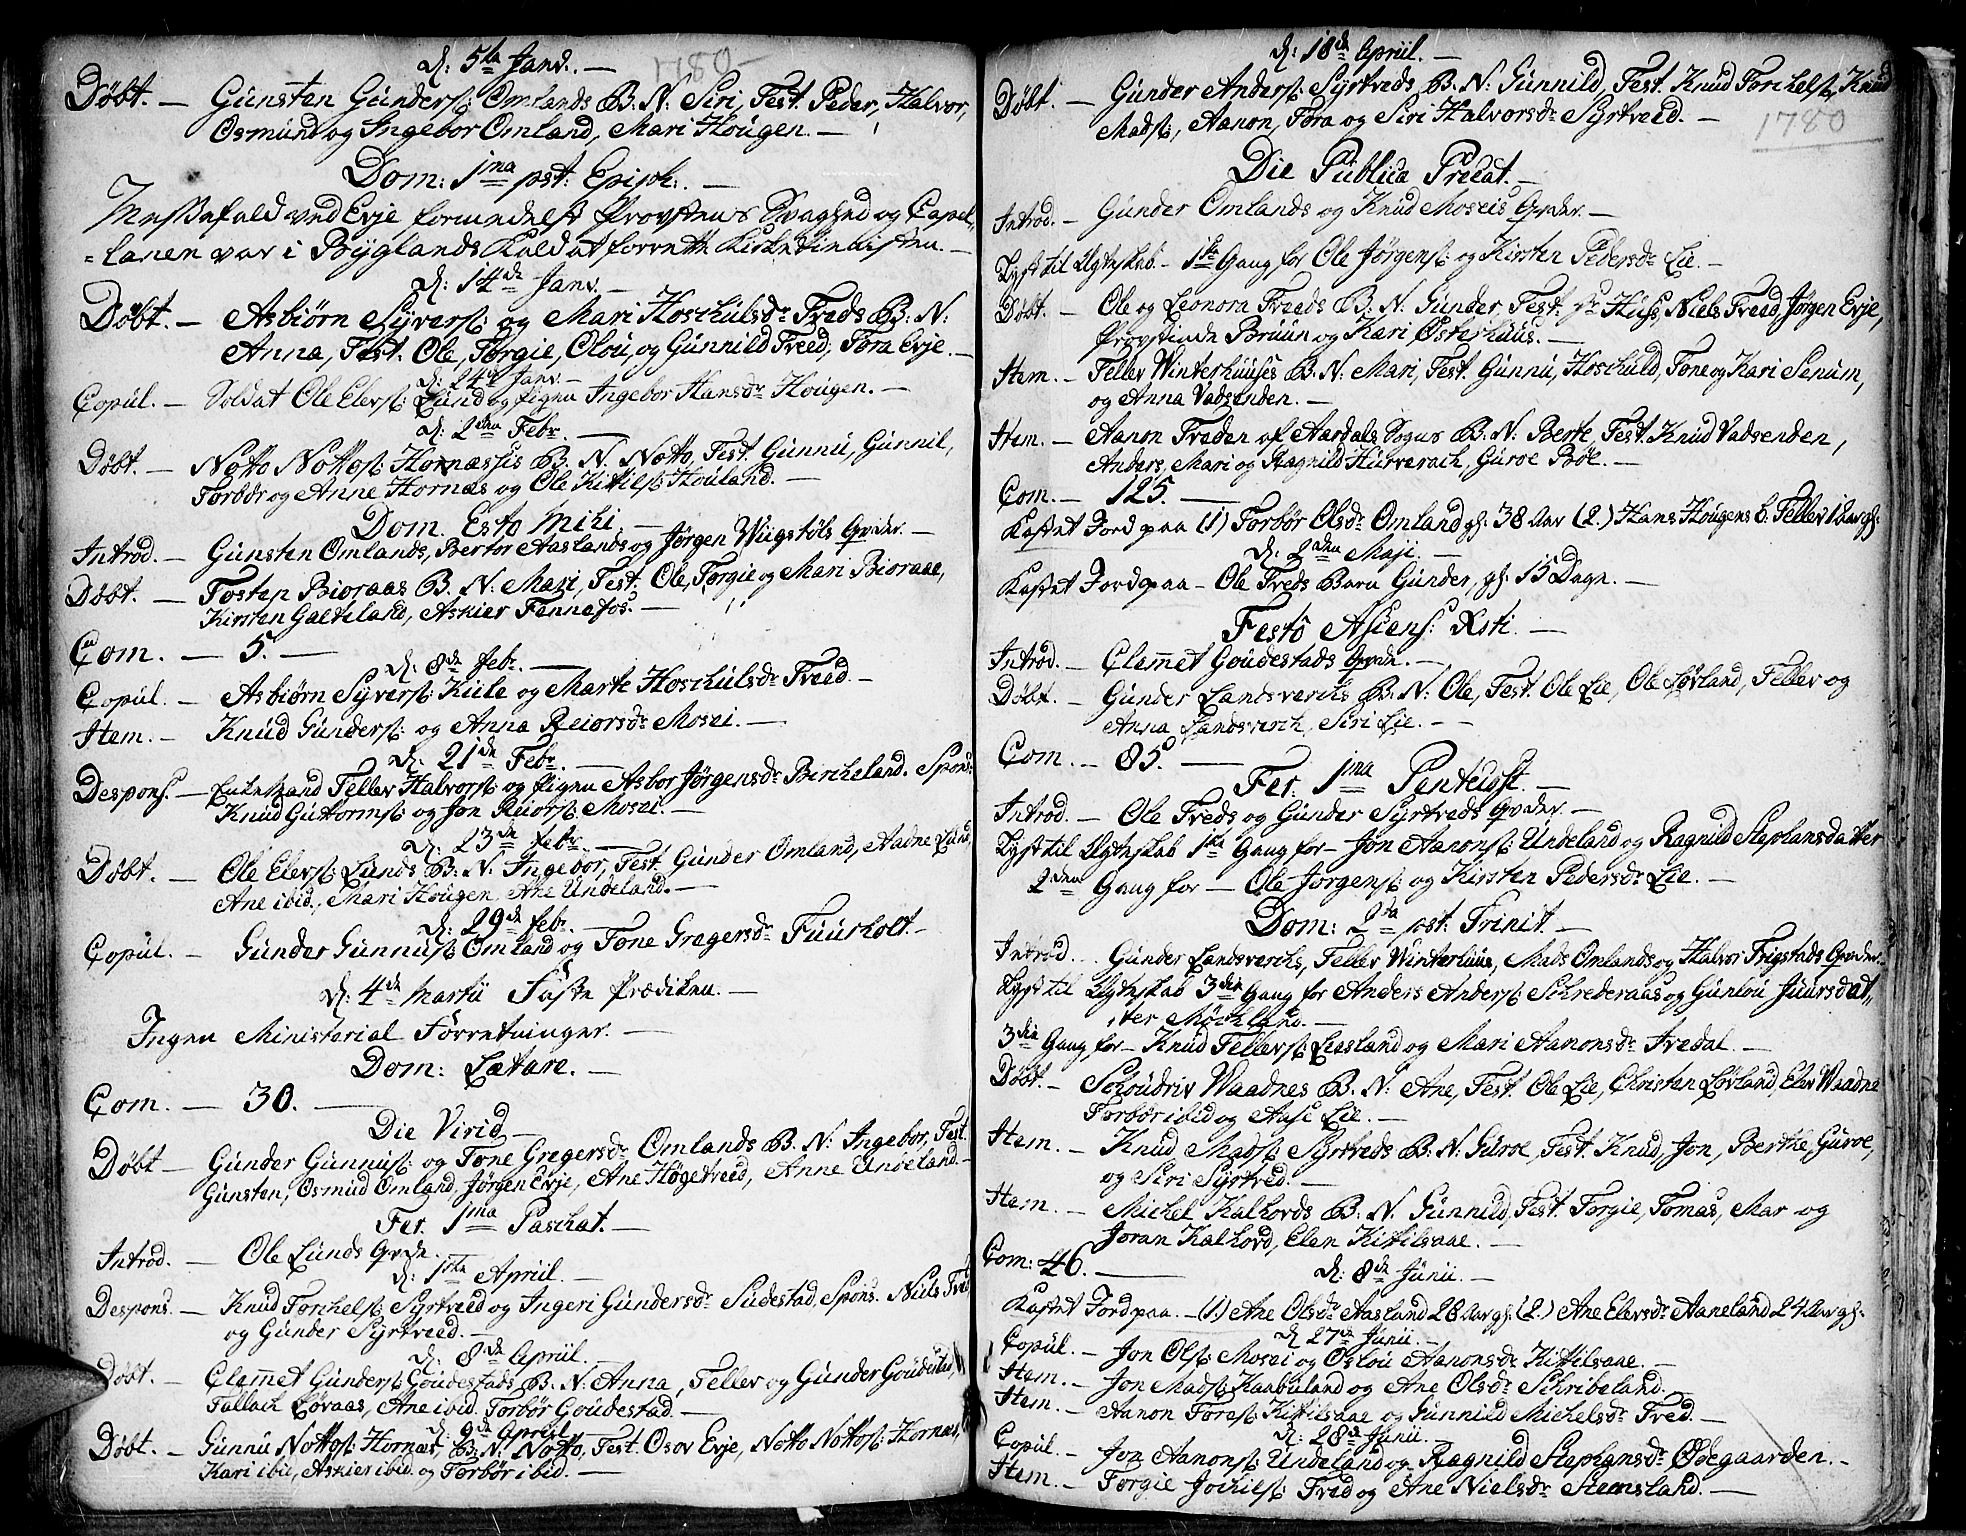 d: 5te Janv. — 1780 —
Döbt. — Gunsten Gunders: Omlands B. N: Siri, Test. Peder, Halvor,
Osmund og Ingebor Omland, Mari Hougen. —
Dom: 1ma pst: Epiph: —
Messefald ved Evje formedelst Provstens Svaghed og Capel-
=lanen var i Byglands Kald at forrette Kirketienisten. —
d: 14de Janv. —
Döbt. — Asbiörn Syvers: og Mari Hoschulsdr Treds B: N:
Anna, Test. Ole, Torgie, Olou, og Gunnild Treed, Tora Evje. —
d: 24de Janv. —
Copul. — Soldat Ole Elevs: Lund og Pigen Ingebor Hansdr Hougen. —
d: 2den Febr. —
Döbt. — Notto Nottos: Hornæssis B. N. Notto, Test. Gunnu, Gunnil,
Torbor og Anne Hornæs og Ole Kittils: Houland. —
Dom. Esto Mihi. —
Introd. — Gunsten Omlands, Bertor Aaslands og Jörgen Wiigstöls Qvder. —
Döbt. — Tosten Bioraas B. N. Mari, Test. Ole, Torgie og Mari Bioraae,
Kirsten Galteland, Askier Fennefos. —
Com. — 5. —
d: 8de febr. —
Copul. — Asbiörn Syvers: Kiile og Marte Hoschulsdr Treed. —
Item. — Knud Gunders: og Anna Reiorsdr Mosei. —
d: 21de Febr. —
Despons. — Enkemand Tellev Halvors: og Pigen Asbor Jörgensdr Bircheland. Spons:
Knud Guttorms: og Jon Reiors: Mosei. —
d: 23de febr. —
Döbt. — Ole Elevs: Lunds B: N. Ingebor, Test. Gunder Omland, Aadne Lund,
Ane ibid., Mari Hougen, Ane Undeland. —
d: 29de febr. —
Copul. — Gunder Gunnus: Omland og Tone Gregersdr Fuurholt. —
d: 4de Martii Faste Prædiken. —
Ingen Ministerial Forretninger. —
Dom: Lætare. —
Com. — 30. —
Die Virid —
Döbt — Gunder Gunnus: og Tone Gregersdr Omlands B. N: Ingebor, Test.
Gunsten, Osmud Omland, Jörgen Evje, Ane Högetveed, Anne Undeland. —
Fer. 1ma Paschat. —
Introd. — Ole Lunds Qvde. —
d: 1ste Apriil. —
Despons. — Knud Torchels: Syrtveed og Ingeri Gundersdr Sudestad, Spons. Niels Tved
og Gunder Syrtveed. —
d: 8de Apriil. —
Döbt. — Clemmet Gunders: Goudestads, B. N: Anna, Tellev og Gunder Goudestad,
Tallach Löraas, Ane ibid, Torbör Goudestad. —
d: 9de Apriil. —
Döbt. — Gunnu Nottos: Hornæs, B. N. Notto, Test. Osov Evje, Notto Nottos: Hornæs,
Kari ibid, Askier ibid. og Torbör ibid. —
d: 18de Apriil. —
Döbt. — Gunder Anders: Syrtveds B. N: Gunnild, Test. Knud Torchels: Knud
Mads:, Aanon, Tora og Siri Halvorsdr Syrtveed. — 1780
Die Publica Precat. —
Introd. — Gunder Omlands og Knud Moseis Qvder. —
Lyst til Ægteskab. — 1ste Gang for Ole Jörgens: og Kirsten Pedersdr Lie. —
Döbt. — Ole og Leonora Treeds B. N: Gunder, Test. Hr Huss, Niels Treed, Jörgen Evje,
Provstinde Bruun og Kari Österhuus. —
Item. — Tellev Winterhuuses B. N: Mari, Test. Gunnu, Hoschuld, Tone og Kari Senum,
og Anna Vadsenden. —
Item. — Aanon Treden af Aardals Sogns B. N: Berte, Test. Knud Vadsenden,
Anders, Mari og Ragnild Hurverach, Guroe Böe. —
Com. — 125. —
Kastet Jord paa (1) Torbör Olsdr Omland gl: 38 Aar (2.) Hans Hougens b. Tellev 1 Aar gl:
d: 2den Maji. —
Kastet Jord paa — Ole Treds Barn Gunder, gl: 15 Dage. —
Festo Ascens: Xsti. —
Introd. — Clemmet Goudestads Qvde. —
Döbt. — Gunder Landsverchs B. N: Ole, Test. Ole Lie, Ole Lövland, Tellev og
Anna Landsverch, Siri Lie. —
Com. — 85. —
Fer. 1ma Pentecost. —
Introd. — Ole Treds og Gunder Syrtveds Qvder. —
Lyst til Ægteskab 1ste Gang for — Jon Aanons: Undeland og Ragnild Stephansdatter
2den Gang for — Ole Jörgens: og Kirsten Pedersdr Lie. —
Dom: 2da post: Trinit. —
Introd. — Gunder Landsverchs, Tellev Winterhuus, Mads Omlands og Halvor Frigstads Qvder.
Lyst til Ægteskab 3die Gang for Anders Anders: Schrederaas og Gunlou Juursdat,,
,,ter Möchland. —
3die Gang for — Knud Tellevs: Liesland og Mari Aanonsdr Tredal. —
Döbt. — Schoudriv Waadnes B. N: Ane, Test. Ole Lie, Christen Lövland, Elev Waadne
Torbör ibid og Aase Lie. —
Item. — Knud Mads: Syrtveds B. N: Guroe, Test. Knud, Jon, Berthe, Guroe,
og Siri Syrtved. —
Item. — Michel Kalhovds B. N. Gunnild, Test. Torgie, Tomas, Mar og
Joran Kalhovd, Elen Kittilsaae. —
Com: 46. —
d: 8de Junii. —
Kastet Jord paa. — (1) Ane Olsdr Aasland 28 Aar gl: (2.) Ane Elevsdr Aaneland 24 Aar gl:
d. 27de Junii. —
Copul. — Jon Ols: Mosei og Oslou Aanonsdr Kittilsaae. —
Item. — Jon Mads: Kaabuland og Ane Olsdr Schribeland. —
Item. — Aanon Tores: Kittilsaae og Gunnild Michelsdr Tred. —
d: 28de Junii. —
Copul. — Jon Aanons: Undeland og Ragnild Stephansdr Ödegaarden. —
Item. — Torgie Jochils: Tred og Ane Nielsdr Hemsland. —